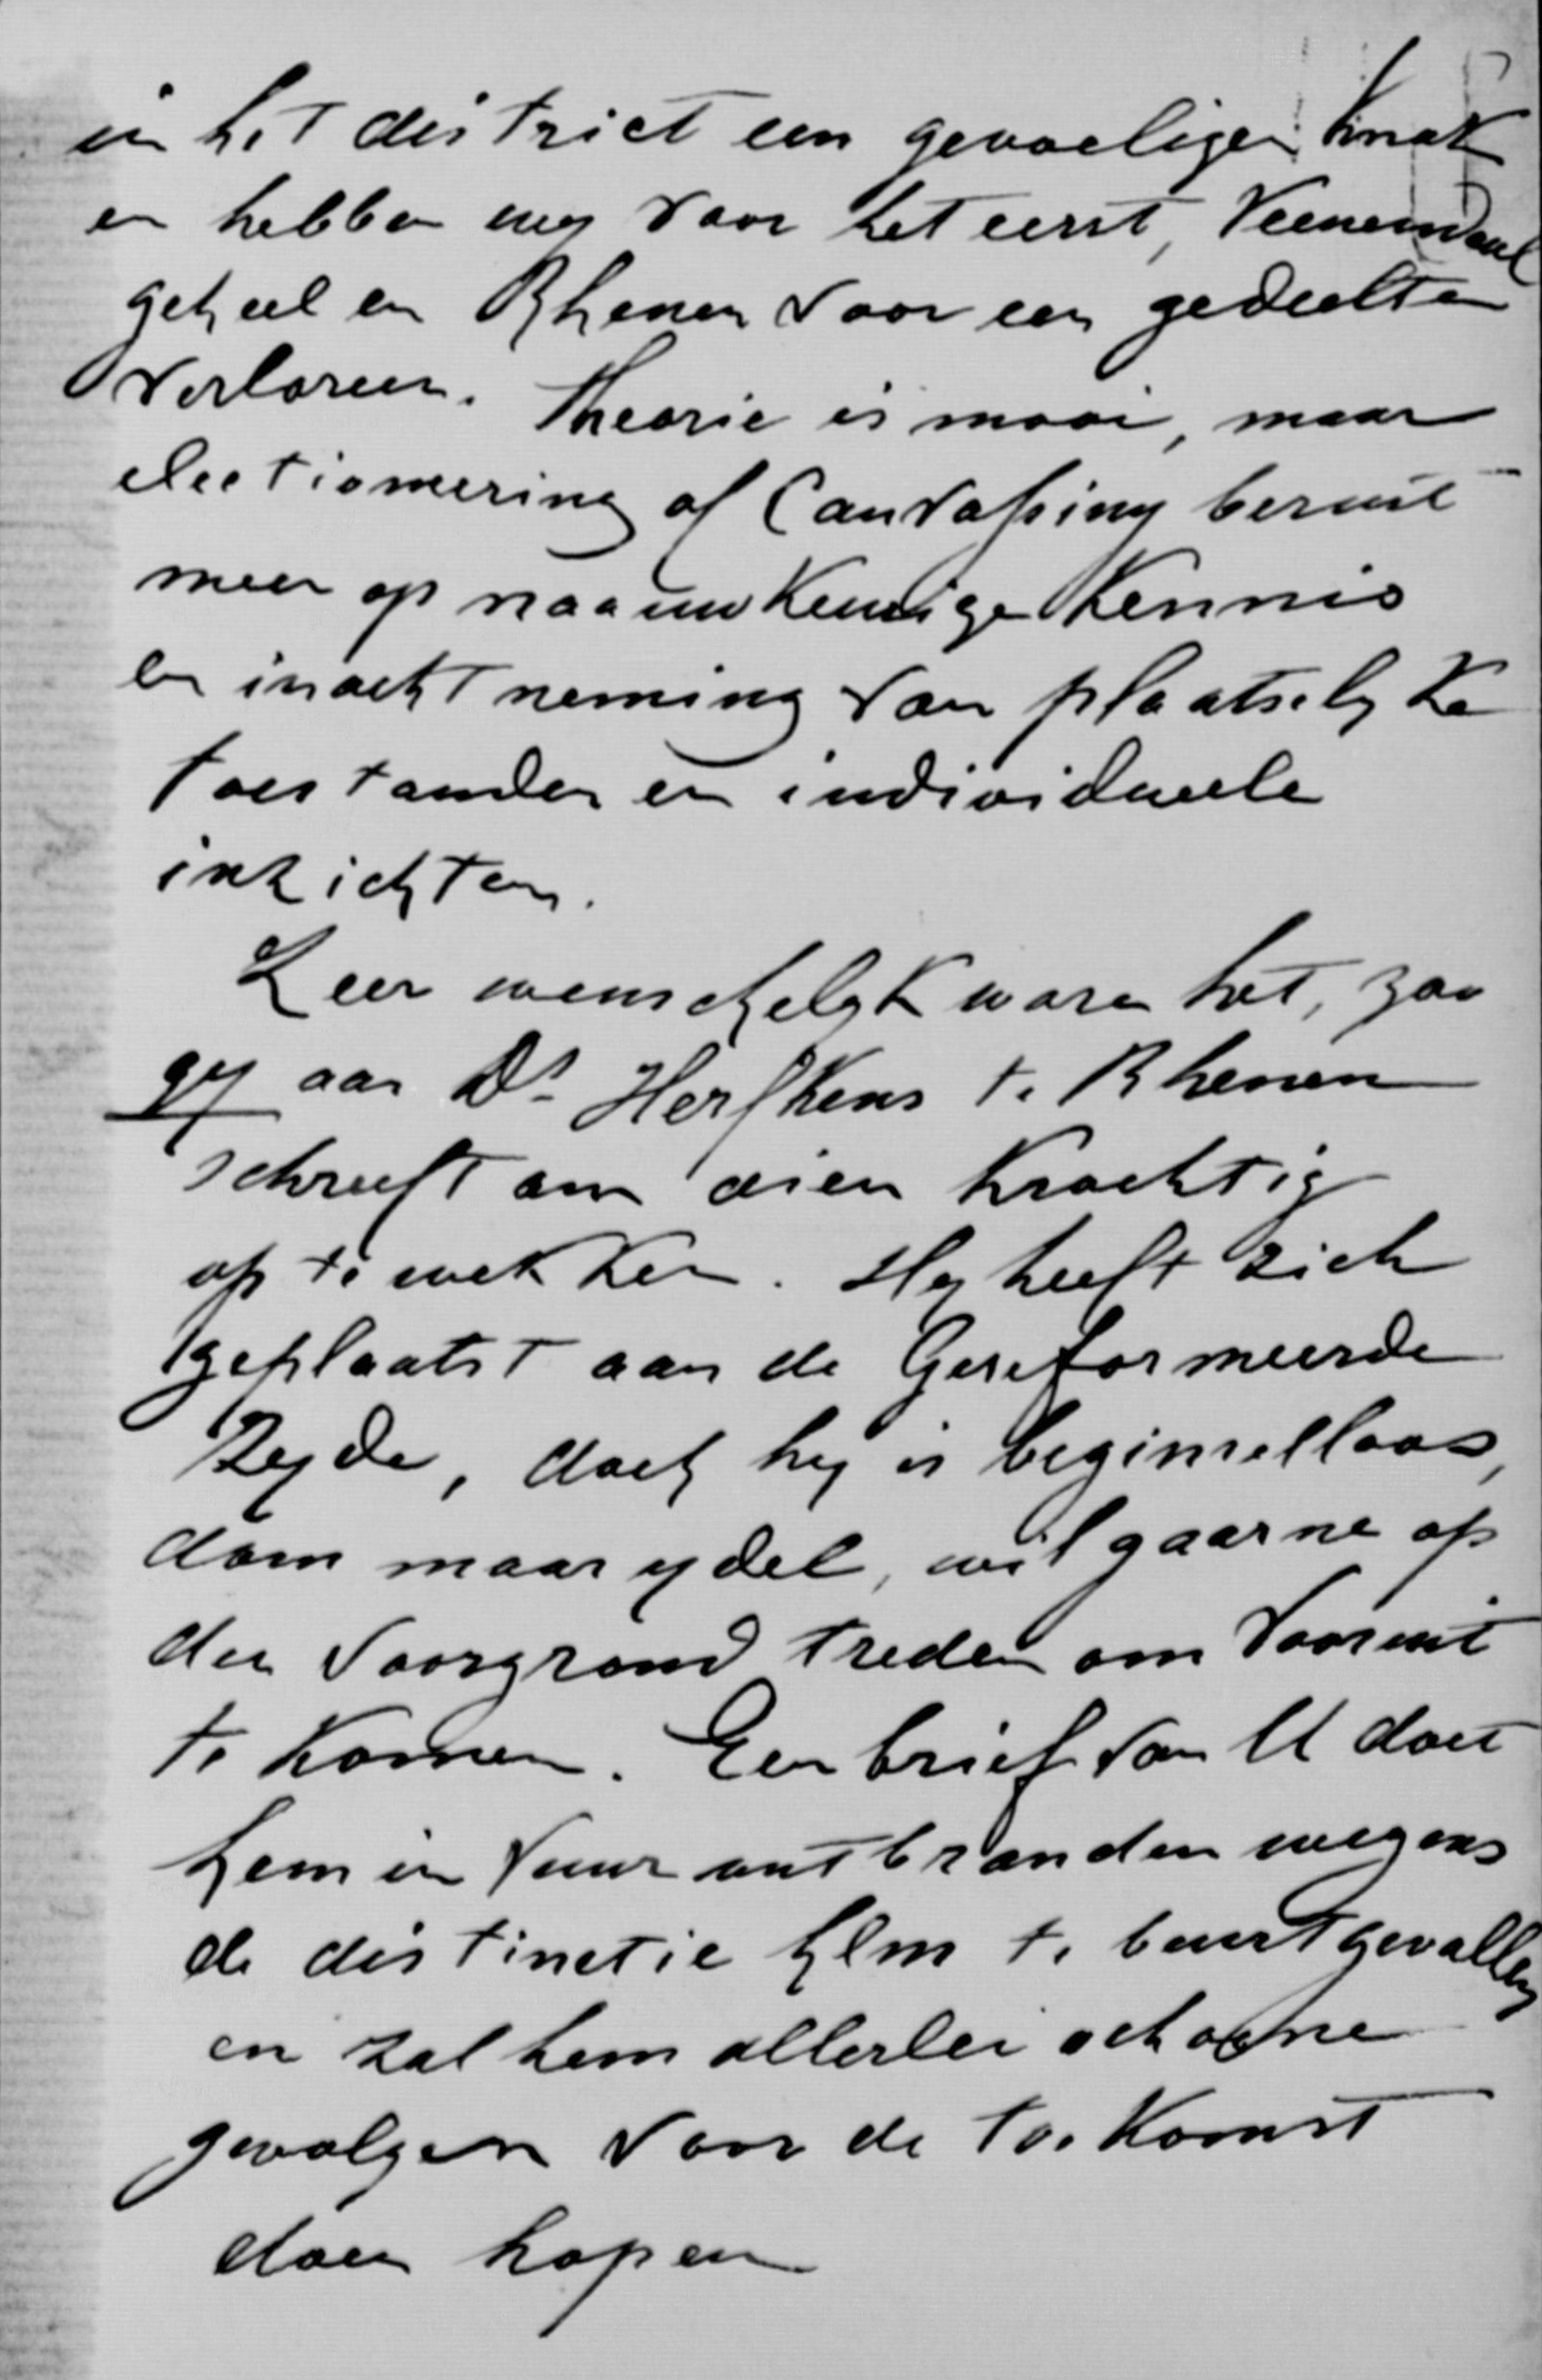 in het district een gevoeligen knak
en hebben wij voor het eerst, Veenendaal
geheel en Rhenen voor een gedeelte
verloren. Theorie is mooi, maar
electioneering of Canvassing berust
meer op naauwkeurige kennis
en inachtneming van plaatselyke
toestanden en individueele
inzichten.
Zeer wenschelyk ware het, zoo
gy aan Ds Herfkens te Rhenen
schreeft om dien krachtig
op te wekken. Hy heeft zich
geplaatst aan de Gereformeerde
Zyde, doch hy is beginselloos,
dom maar ydel, wil gaarne op
den voorgrond treden om vooruit
te komen. Een brief van U doet
hem in vuur ontbranden wegens
de distinctie hem te beurt gevallen
en zal hem allerlei schoone
gevolgen voor de toekomst
doen hopen